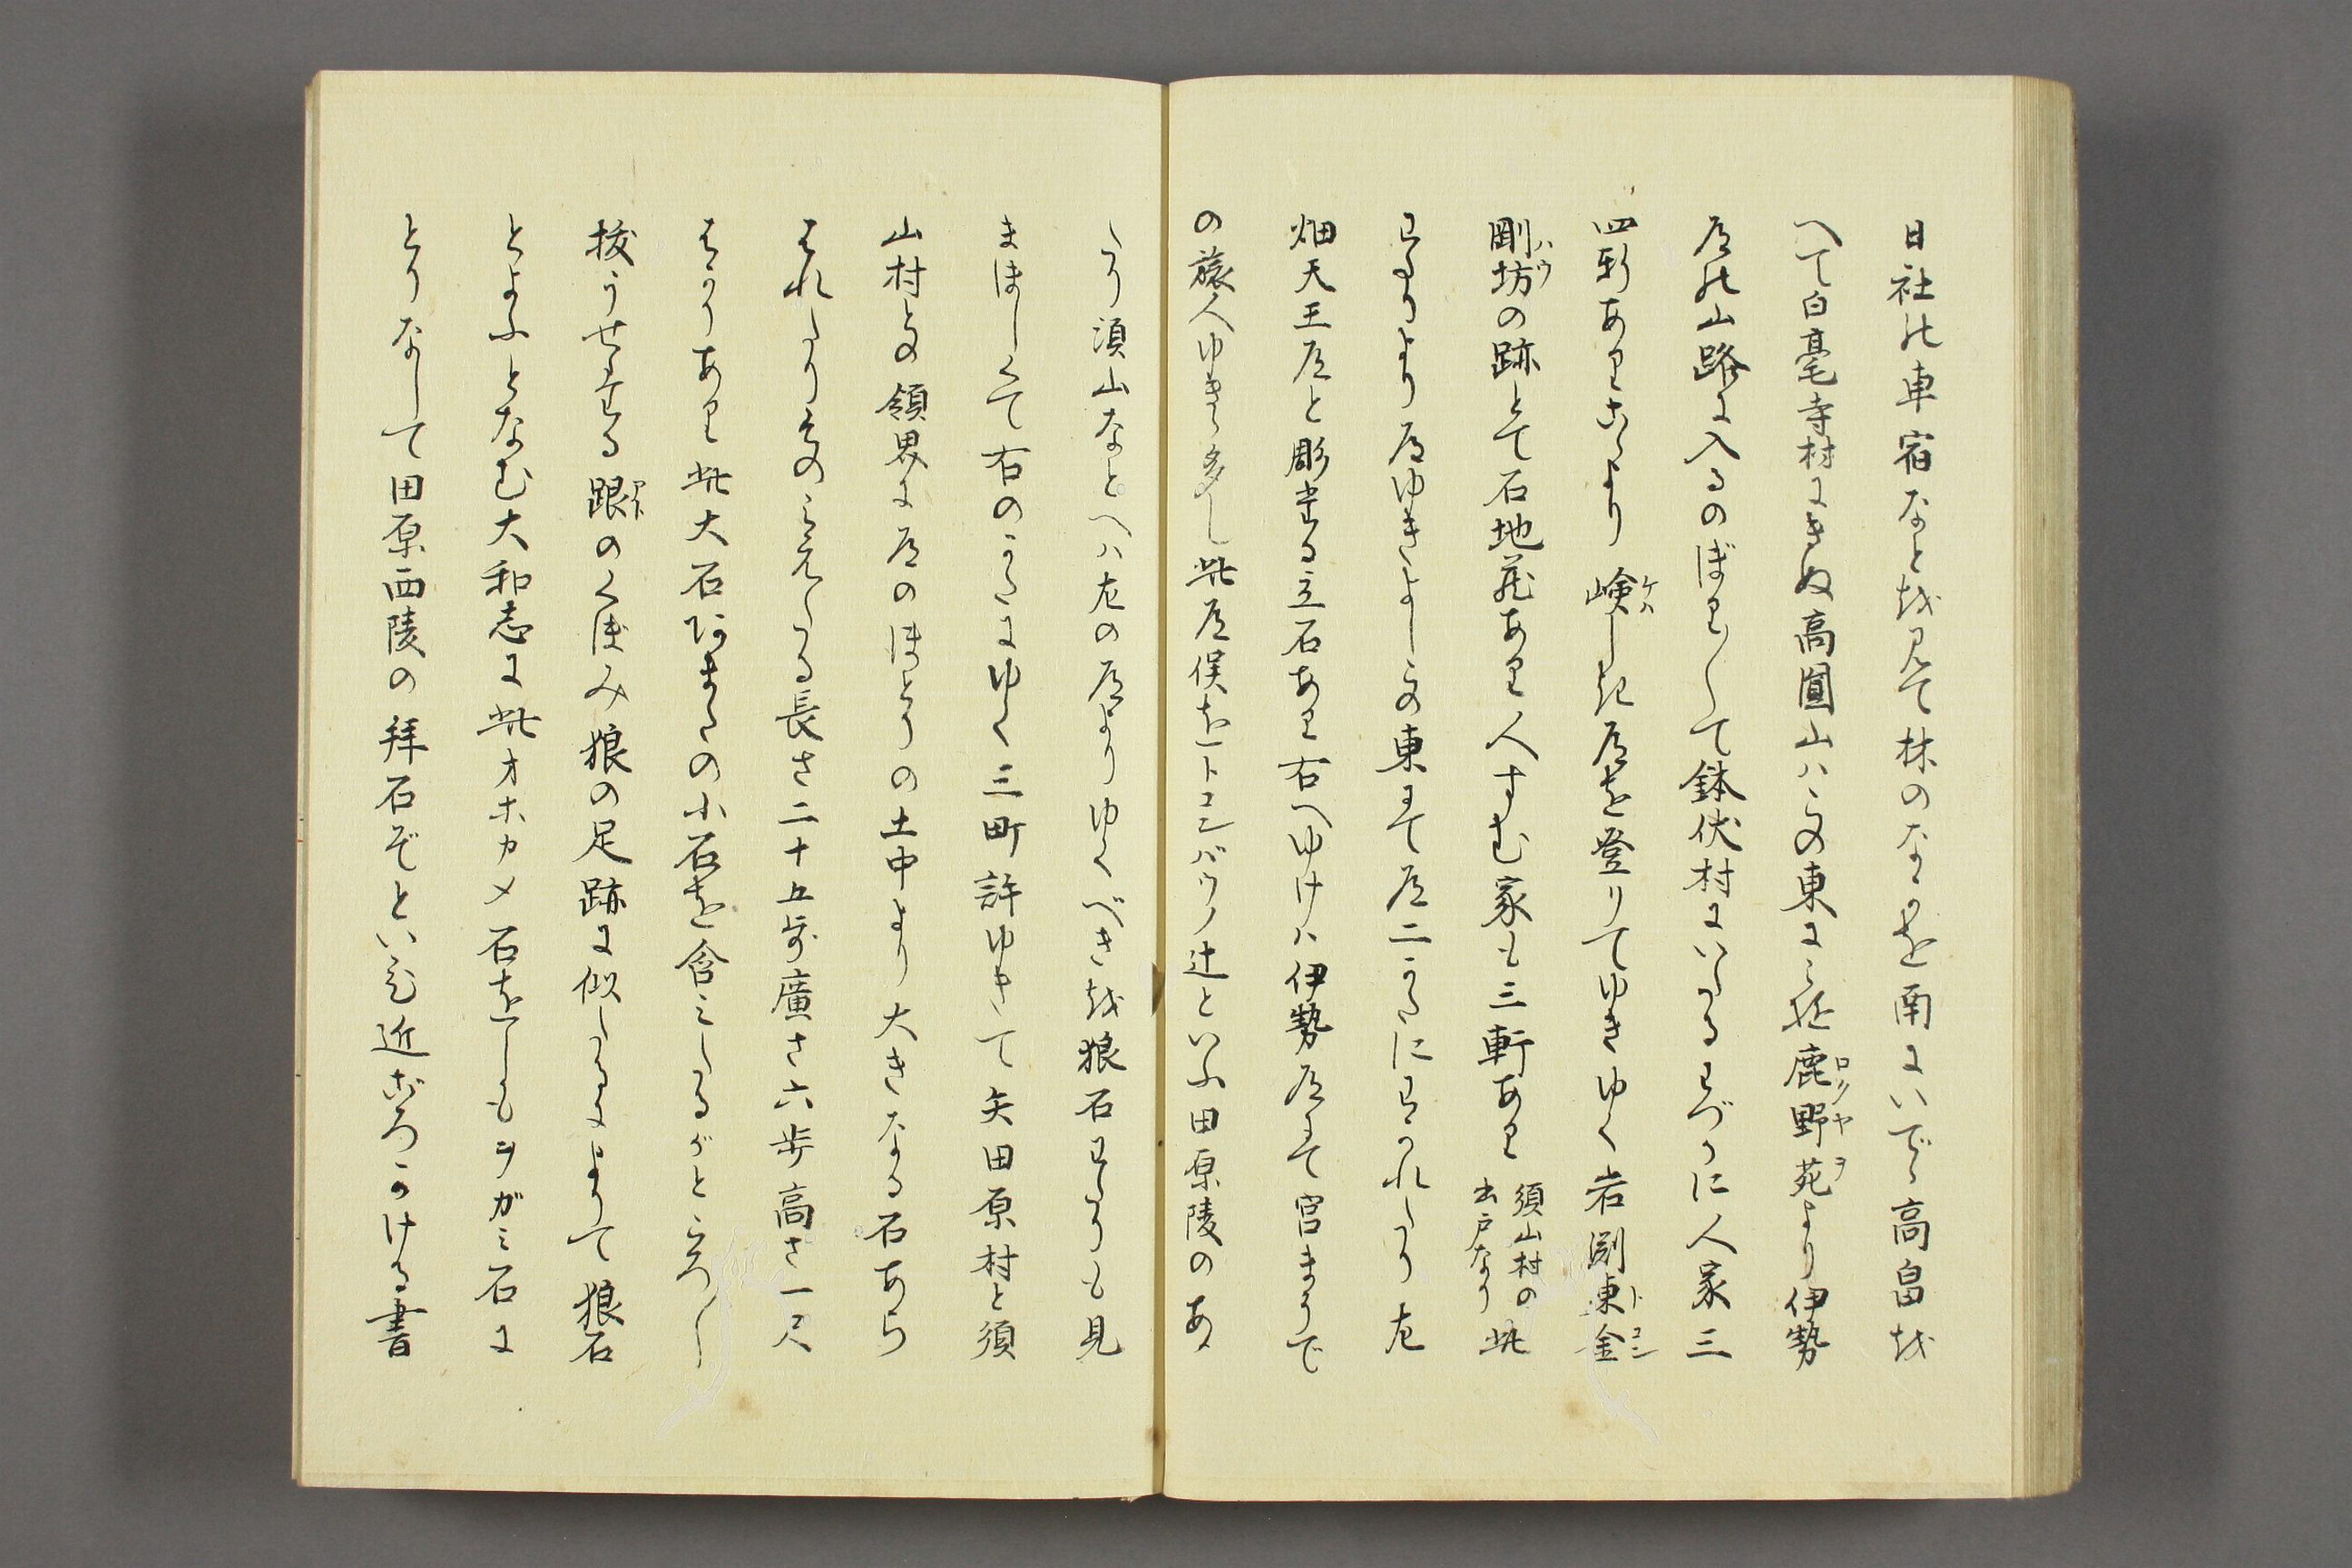 日社の車宿なとを見て林のなかを南にいでゝ高畠を
へて白毫寺村にきぬ高圓山ハこの東にこそ鹿野苑より伊勢
道の山路に入るのぼり〳〵て鉢伏村にいたるわづかに人家三
四軒ありこゝより嶮しき道を登りてゆきゆく岩渕東金
剛坊の跡とて石地蔵あり人すむ家も三軒あり須山村の出戸なり此
わたりより道ゆきよしこの東にて道二かたにわかれたり左
畑天王道と彫たる立石あり右へゆけハ伊勢道にて宮まうで
の旅人ゆきゝ多し此道俣をトコンバウノ辻といふ田原陵のあ
たり須山なとへハ左の道よりゆくべきを狼石わたりも見
まほしくて右のかたにゆく三町許ゆきて矢田原村と須
山村との領界に道のほとりの土中より大きなる石あら
はれたりその見えたる長さ二十五歩廣さ六歩高さ一尺
はかりあり此大石あまたの小石を含みたるがところ〳〵
抜うせたる跟のくぼみ狼の足跡に似たるによりて狼石
とよふとなむ大和志に此オホカメ石をしもヲガミ石に
とりなして田原西陵の拜石ぞといひ近ごろかける書